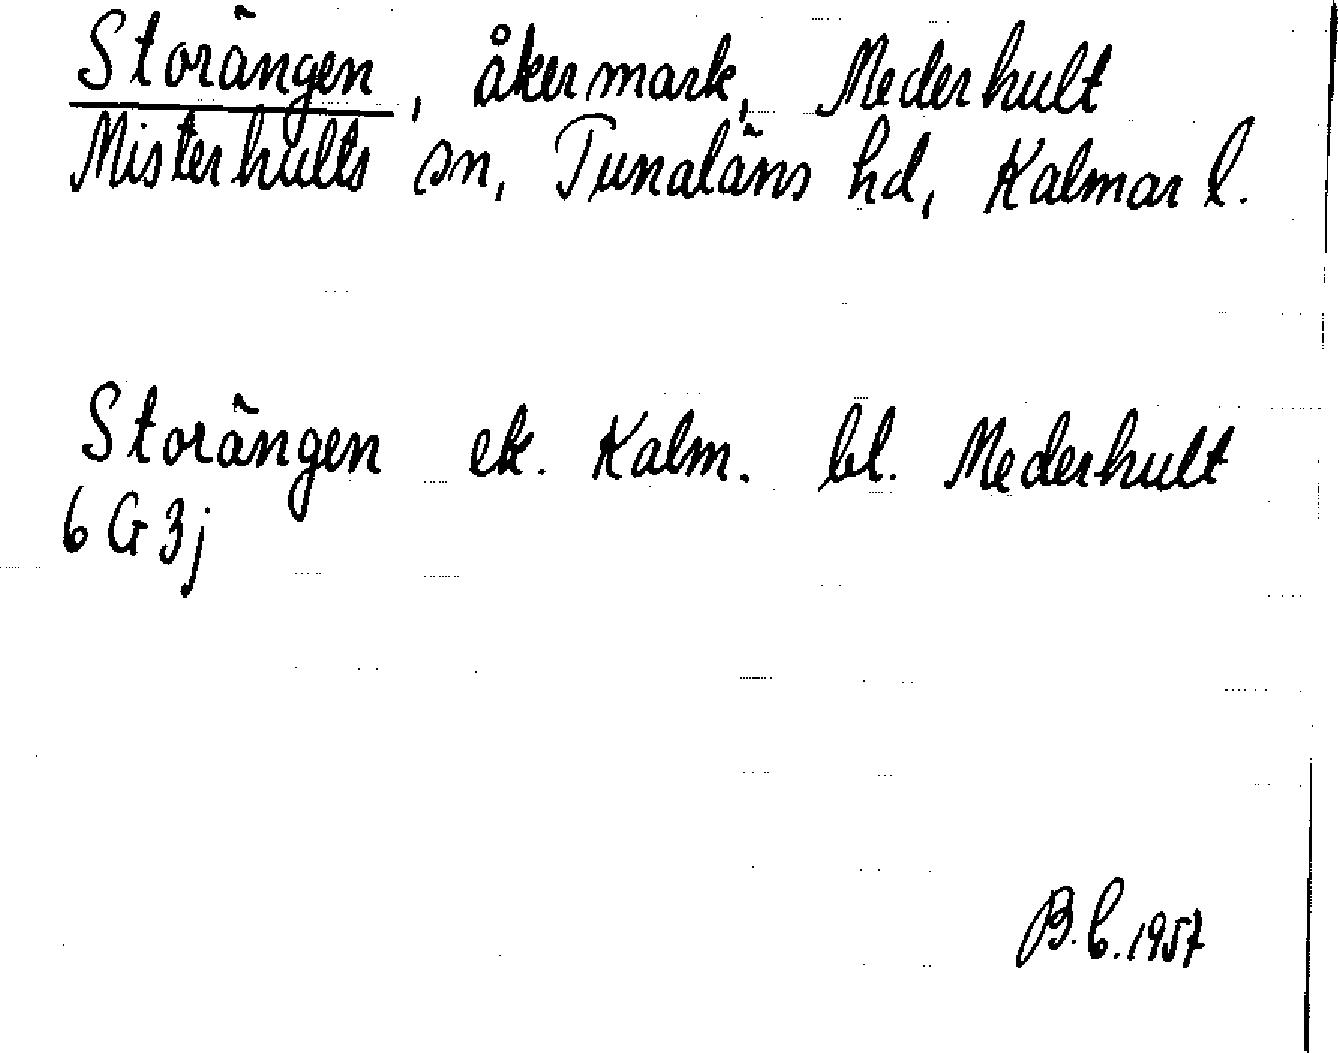 Storängen, åkermark, Mederhult
Misterhults sn, Tunaläns hd, Kalmar l.
Storängen ek. Kalm. bl. Mederhult
6 G 3j
B.C. 1957